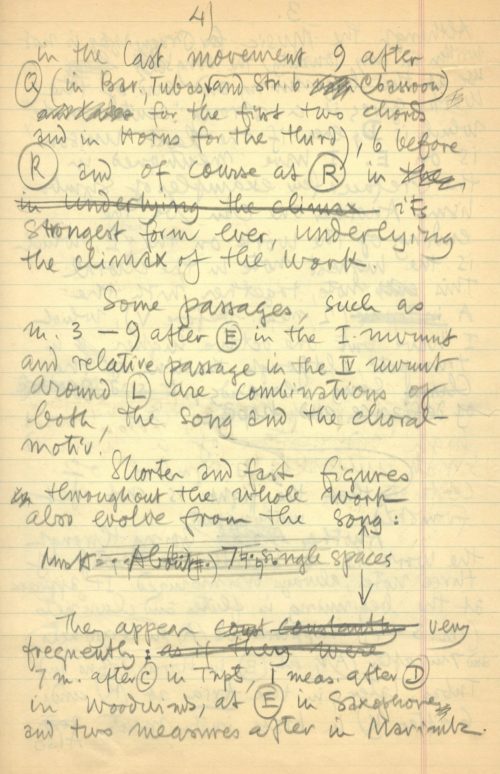 4)
in the last movement 9 after
Q (in Bar., Tubas and Str. b. (bassoon)
for the first two chords
and in Horns for the third), 6 before
R and of course at R in
in underlying the climax its
strongest form ever, underlying
the climax of the work.
Some passages, such as
m. 3 – 9 after E in the I. mvmnt
and relative passage in the IV mvmnt
around L are combinations of
both, the song and the choral-
motiv!
Shorter and fast figures
in throughout the whole work
also evolve from the song:
7 single spaces
They appear const constantly very
frequently: as if they were
7 m. after C in Trpt, 1 meas. after D
in woodwinds, at E in Saxophone
and two measures after in Marimba.